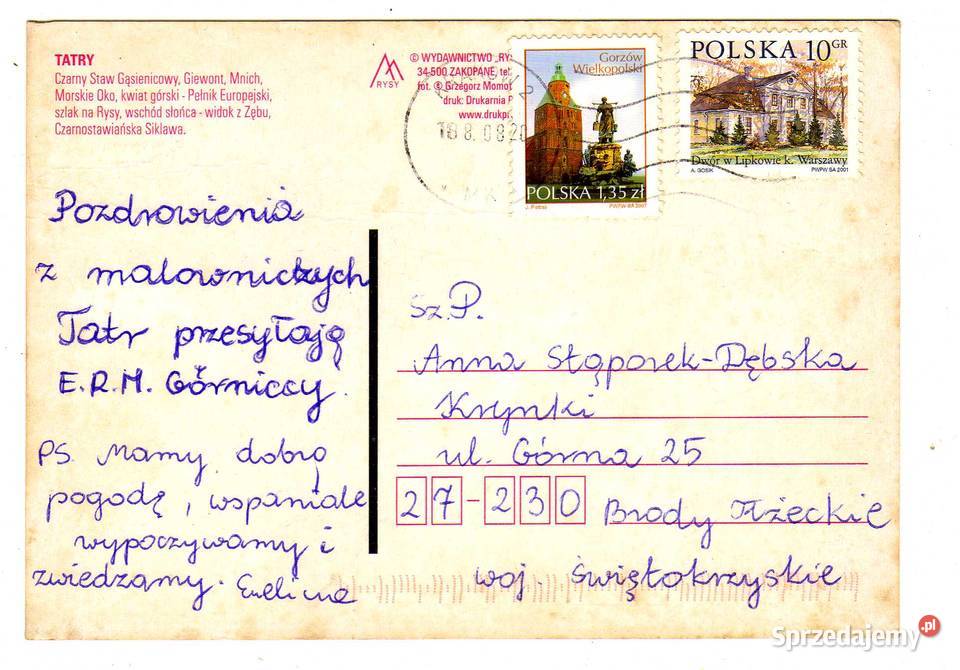 TATRY
Czarny Staw Gąsienicowy, Giewont, Mnich,
Morskie Oko, kwiat górski - Pełnik Europejski,
szlak na Rysy, wschód słońca - widok z Zębu,
Czarnostawiańska Siklawa.
RYSY
© WYDAWNICTWO „RYS
34-500 ZAKOPANE, tel
fot. © Grzegorz Momot
druk: Drukarnia P
www.drukp
Gorzów
Wielkopolski
POLSKA 1,35 zł
PWPW SA 2007
POLSKA 10 GR
Dwór w Lipkowie k. Warszawy
A. GOSIK
PWPW SA 2001
Pozdrowienia
z malowniczych
Tatr przesyłają
E.R.M. Górniccy.
PS. Mamy dobrą
pogodę, wspaniale
wypoczywamy i
zwiedzamy. Ewelina
Sz.P.
Anna Stąporek-Dębska
Krynki
ul. Górna 25
27-230 Brody Iłżeckie
woj. świętokrzyskie
Sprzedajemy.pl